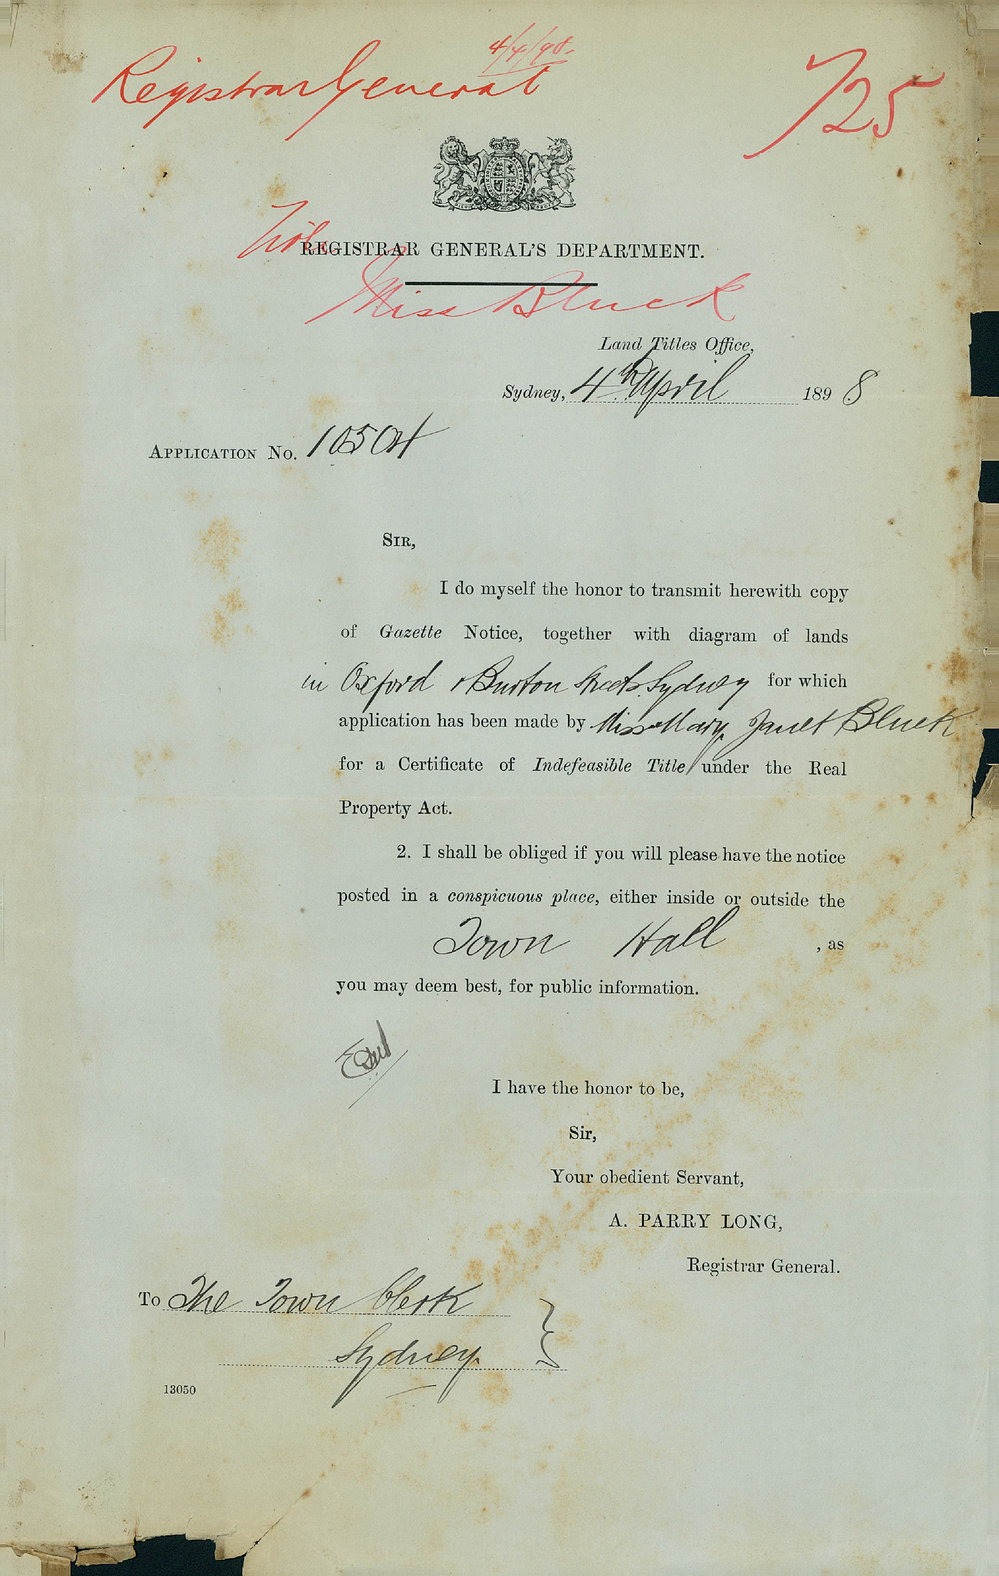 4/4/98.
Registrar General
725
REGISTRAR GENERAL'S DEPARTMENT.
Miss Bluck
Land Titles Office,
Sydney, 4th April 1898
APPLICATION No. 10504
SIR,
I do myself the honor to transmit herewith copy
of Gazette Notice, together with diagram of lands
in Oxford & Burton Streets Sydney for which
application has been made by Miss Mary Janet Bluck
for a Certificate of Indefeasible Title under the Real
Property Act.
2. I shall be obliged if you will please have the notice
posted in a conspicuous place, either inside or outside the
Town Hall , as
you may deem best, for public information.
I have the honor to be,
Sir,
Your obedient Servant,
A. PARRY LONG,
Registrar General.
To The Town Clerk
Sydney.
13050